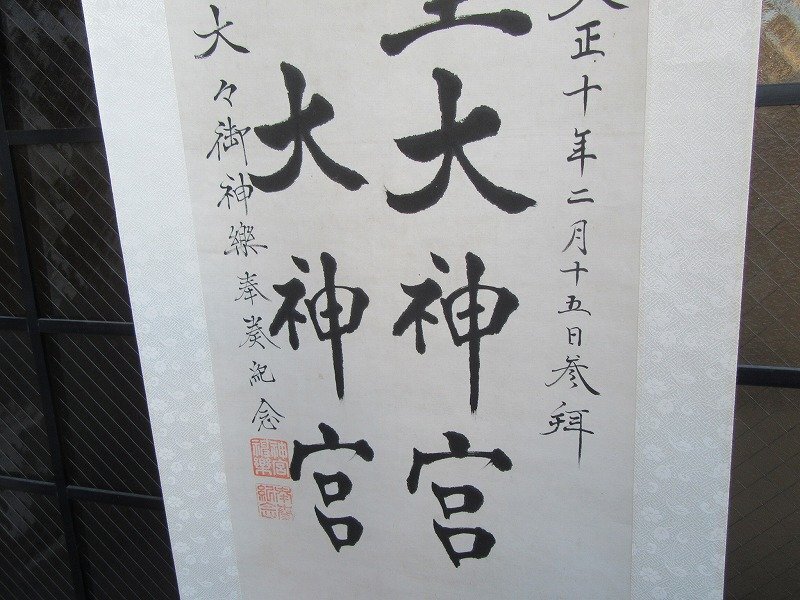 大正十年二月十五日参拜
皇大神宮
大神宮
大々御神樂奉奏紀念
神宮
神樂